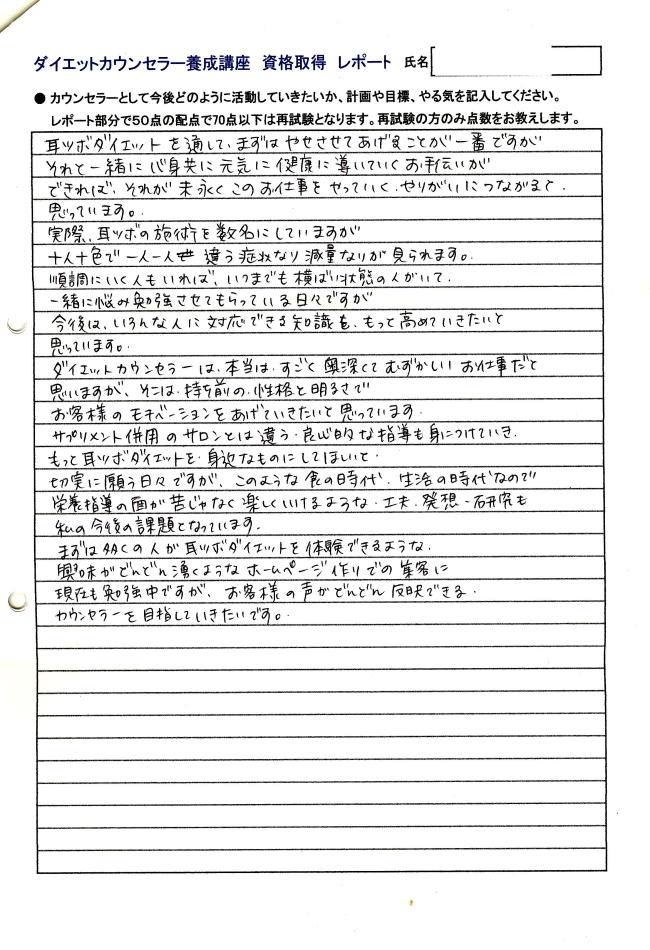 ダイエットカウンセラー養成講座 資格取得 レポート 氏名
● カウンセラーとして今後どのように活動していきたいか、計画や目標、やる気を記入してください。
レポート部分で50点の配点で70点以下は再試験となります。再試験の方のみ点数をお教えします。
耳ツボダイエットを通して、まずはやせさせてあげることが一番ですが
それと一緒に心身共に元気に健康に導いていくお手伝いが
できれば、それが末永くこのお仕事をやっていく、やりがいにつながると、
思っています。
実際、耳ツボの施術を数名にしていますが
十人十色で一人一人違う症状なり減量なりが見られます。
順調にいく人もいれば、いつまでも横ばい状態の人がいて、
一緒に悩み勉強させてもらっている日々ですが
今後は、いろんな人に対応できる知識を、もっと高めていきたいと
思っています。
ダイエットカウンセラーは、本当は、すごく奥深くてむずかしいお仕事だと
思いますが、そこは、持ち前の、性格と明るさで
お客様のモチベーションをあげていきたいと思っています。
サプリメント併用のサロンとは違う、良心的な指導も身につけていき、
もっと耳ツボダイエットを、身近なものにしてほしいと、
切実に願う日々ですが、このような食の時代、生活の時代なので
栄養指導の面が苦じゃなく楽しくいけるような、工夫、発想、研究も
私の今後の課題となっています。
まずは多くの人が耳ツボダイエットを体験できるような、
興味がどんどん湧くようなホームページ作りでの集客に
現在も勉強中ですが、お客様の声がどんどん反映できる、
カウンセラーを目指していきたいです。